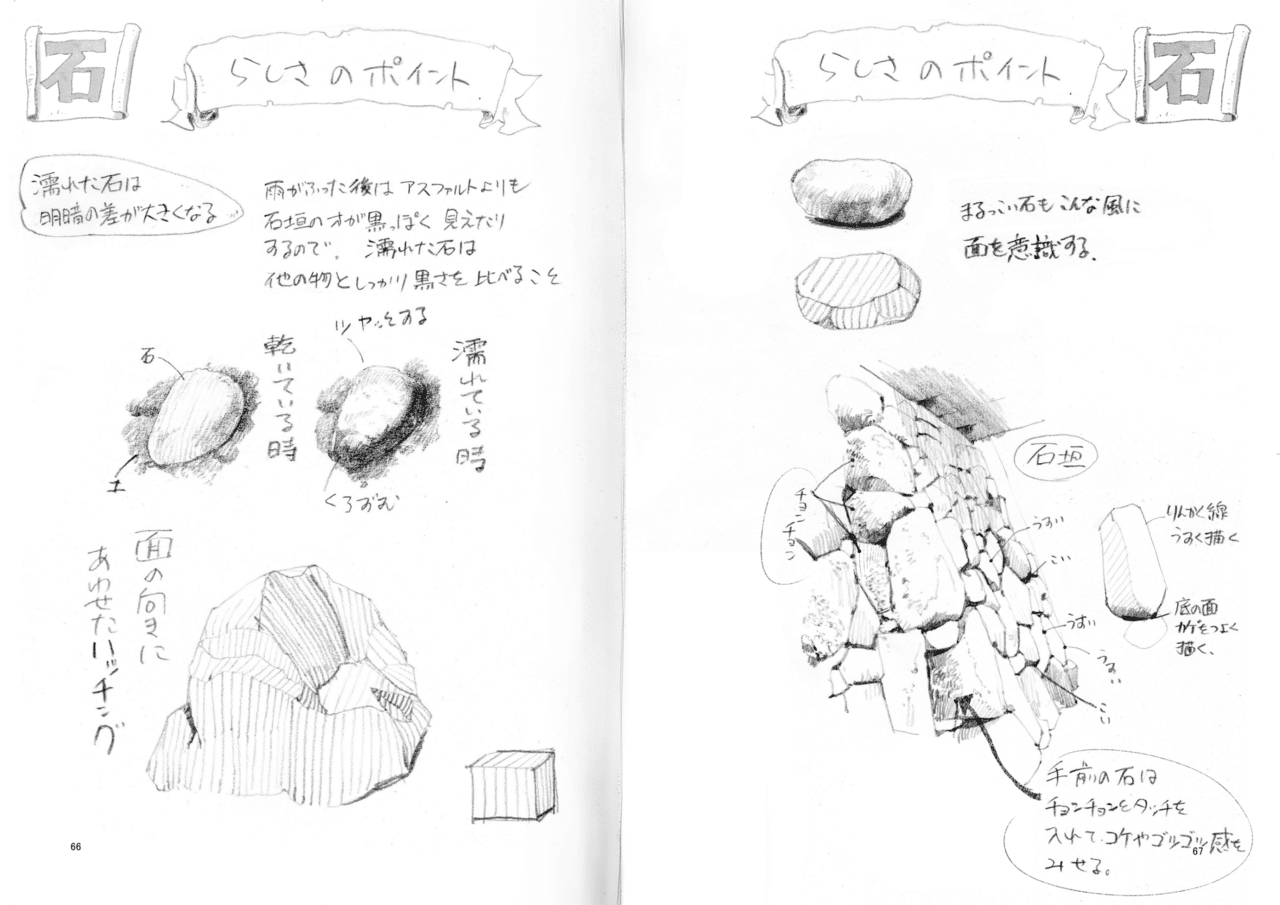 石
らしさのポイント
濡れた石は
明暗の差が大きくなる
雨がふった後は アスファルトよりも
石垣の方が黒っぽく 見えたり
するので。 濡れた石は
他の物としっかり黒さを 比べること
乾いている時
石
土
濡れている時
ツヤッとする
くろずむ
面の向きに
あわせたハッチング
66
らしさのポイント
石
まるっこい石もこんな風に
面を意識する。
石垣
チョンチョン
うすい
こい
うすい
うすい
こい
りんかく線
うすく描く
底の面
カゲをつよく
描く、
手前の石は
チョンチョンとタッチを
入れて、コケやゴツゴツ感を
みせる。
67